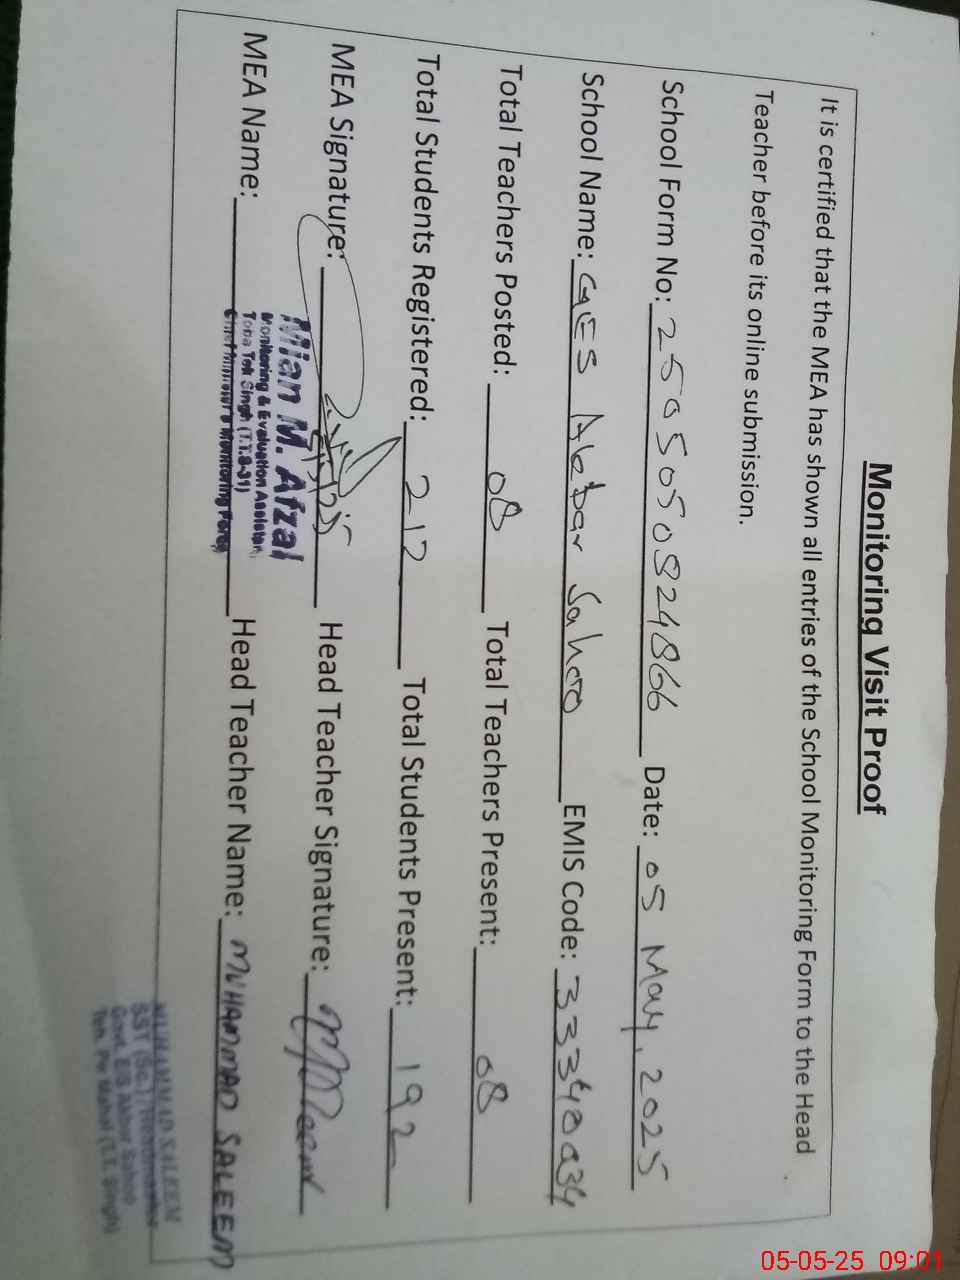 Monitoring Visit Proof
It is certified that the MEA has shown all entries of the School Monitoring Form to the Head
Teacher before its online submission.
School Form No: 2505050824866 Date: 05 May, 2025
School Name: GES Akbar Sahoo EMIS Code: 33340034
Total Teachers Posted: 08 Total Teachers Present: 08
Total Students Registered: 212 Total Students Present: 192
MEA Signature: 5/5/25 Head Teacher Signature:
MEA Name: Head Teacher Name: MUHAMMAD SALEEM
Mian M. Afzal
Monitoring & Evaluation Assistant
Toba Tek Singh (T.T.S-31)
Chief Minister's Monitoring Force
MUHAMMAD SALEEM
SST (Sc.)
Govt. E/S Akbar Sahoo
Teh. Pir Mahal (T.T. Singh)
05-05-25 09:01